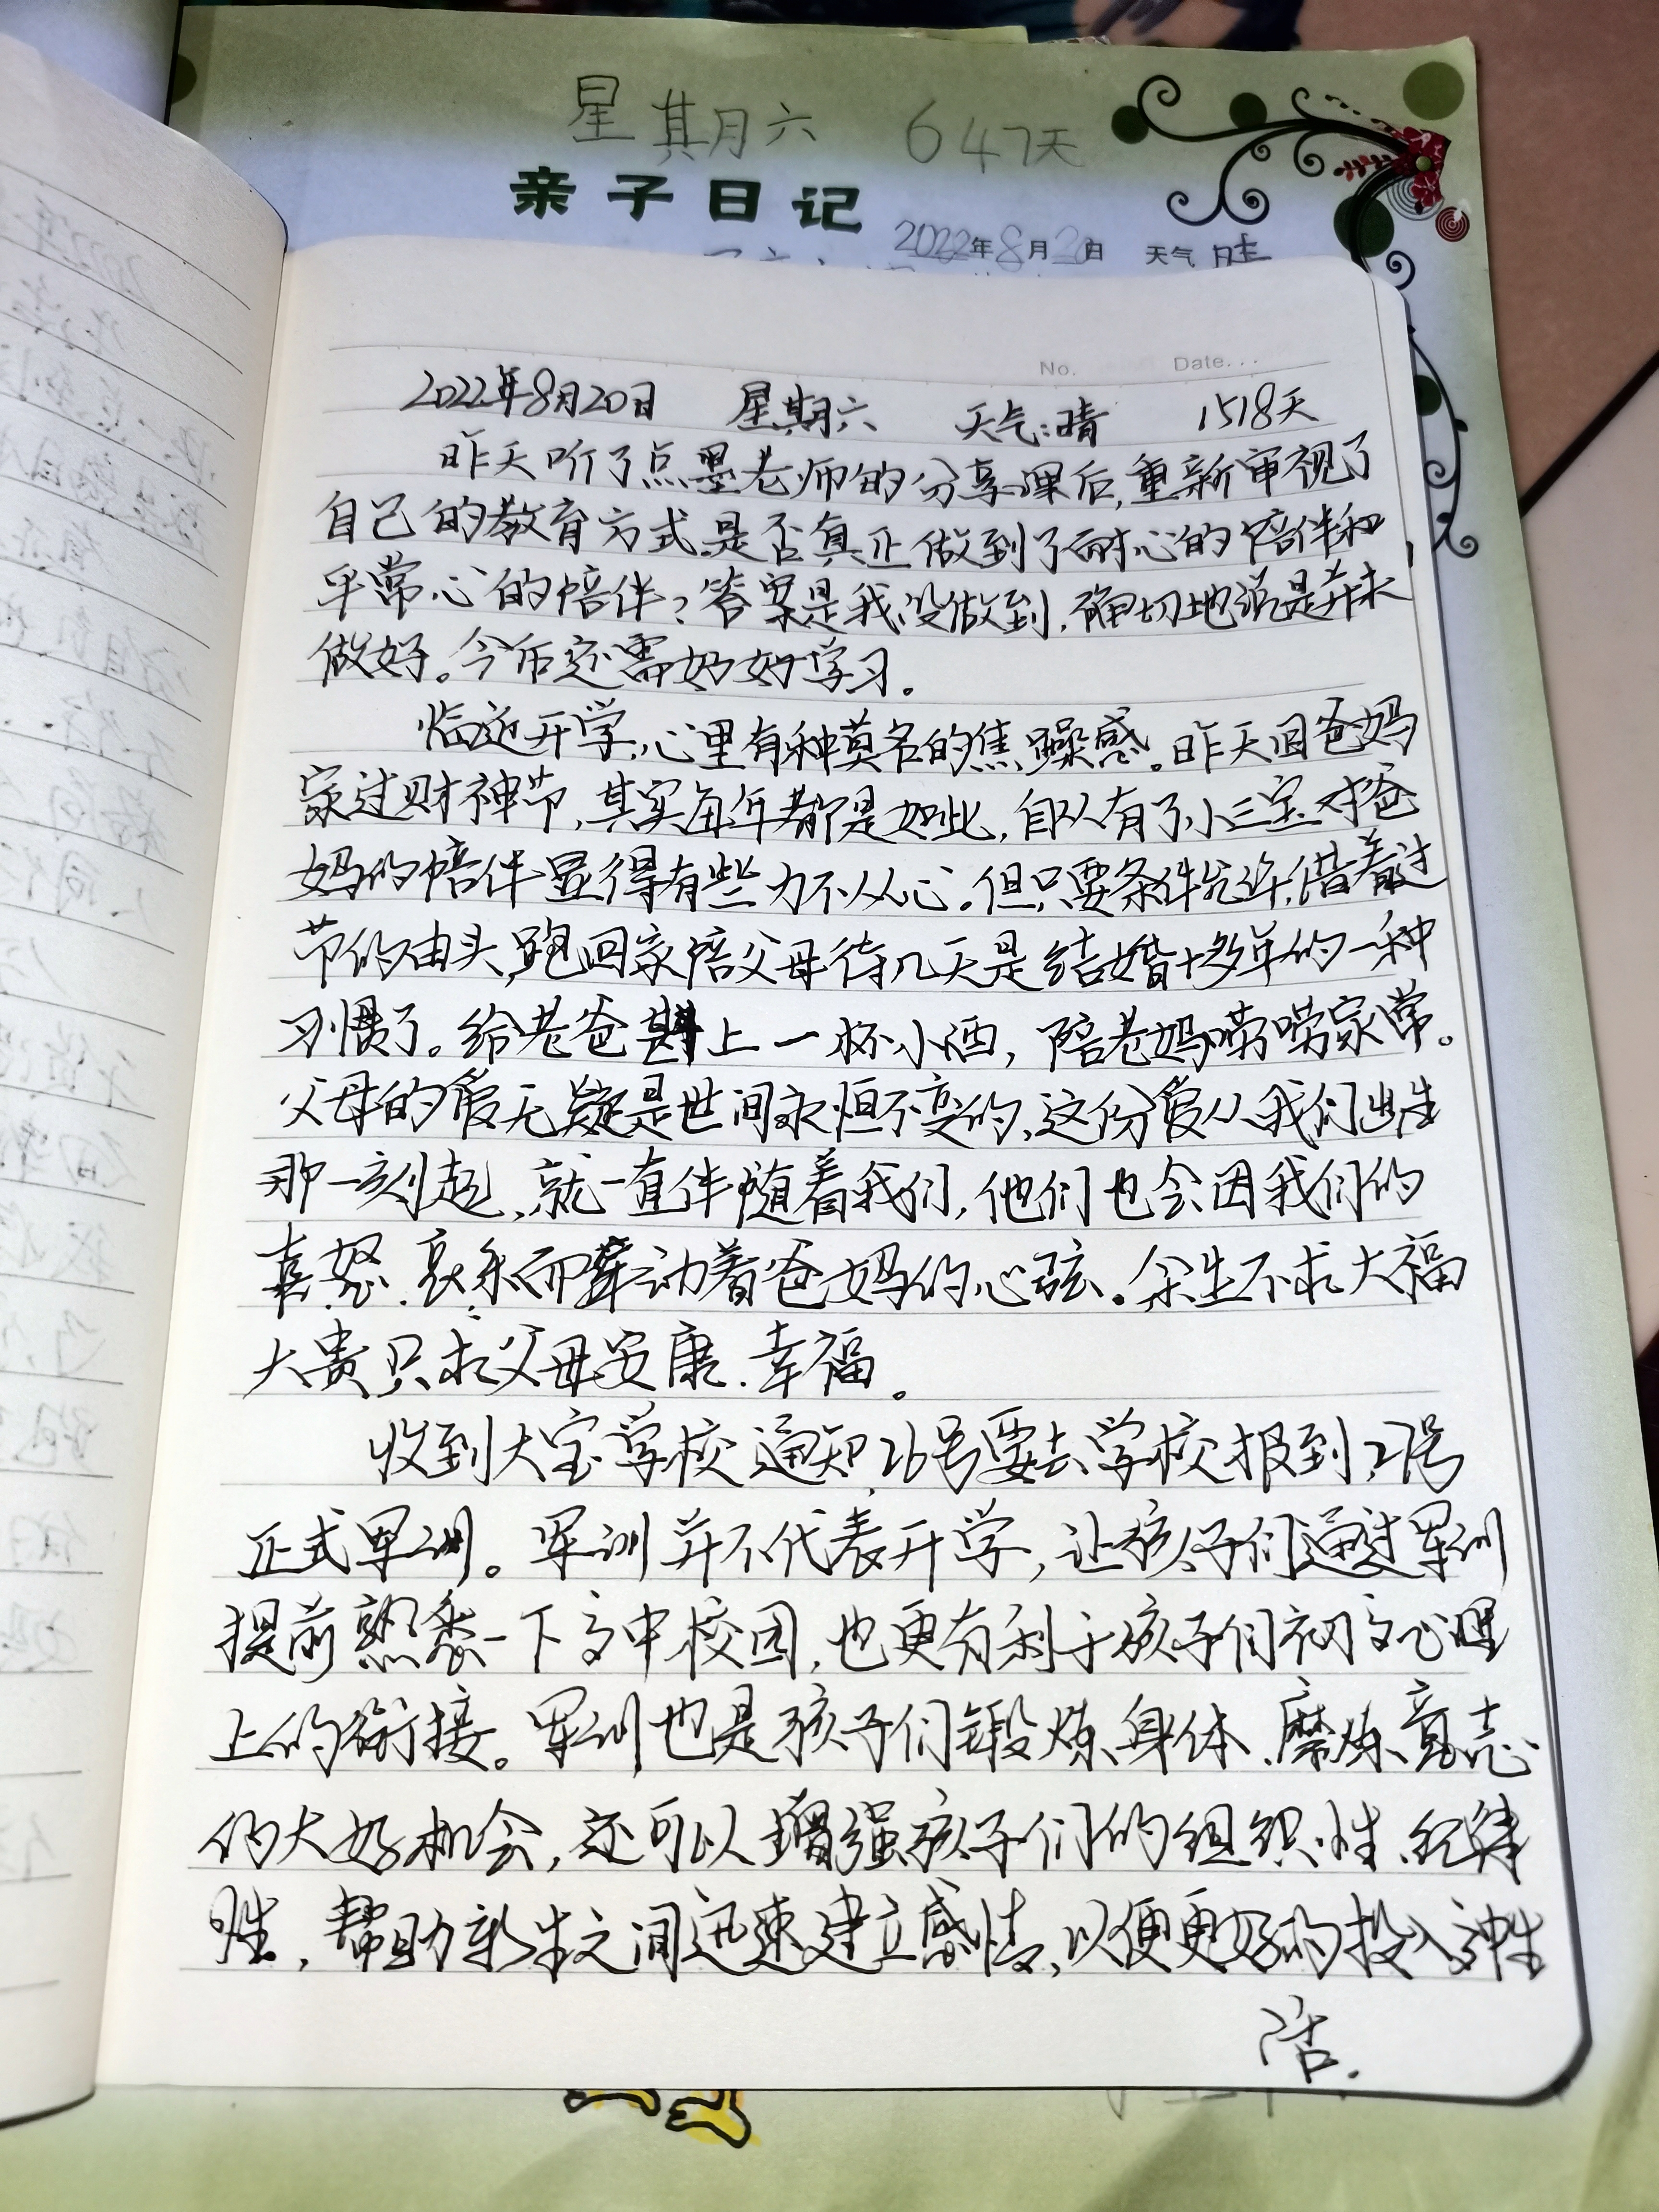 星期六 647天
亲子日记
2022年8月20日 天气 晴
No. Date...
2022年8月20日 星期六 天气:晴 1518天
昨天听了点墨老师的分享课后,重新审视了
自己的教育方式,是否真正做到了耐心的陪伴和
平常心的陪伴?答案是我没做到,确切地说是并未
做好。今后还需好好学习。
临近开学,心里有种莫名的焦躁感。昨天回爸妈
家过财神节,其实每年都是如此,自从有了小三宝对爸
妈的陪伴显得有些力不从心。但只要条件允许,借着过
节的由头,跑回家陪父母待几天是结婚十多年的一种
习惯了。给老爸斟上一杯小酒,陪老妈唠唠家常。
父母的爱无疑是世间永恒不变的,这份爱从我们出生
那一刻起,就一直伴随着我们,他们也会因我们的
喜、怒、哀、乐而牵动着爸妈的心弦。余生不求大福
大贵只求父母安康、幸福。
收到大宝学校通知,26号要去学校报到,27号
正式军训。军训并不代表开学,让孩子们通过军训
提前熟悉一下高中校园,也更有利于孩子们初高心理
上的衔接。军训也是孩子们锻炼身体、磨炼意志
的大好机会,还可以增强孩子们的组织性、纪律
性,帮助新生之间迅速建立感情,以便更好的投入高中生
活.